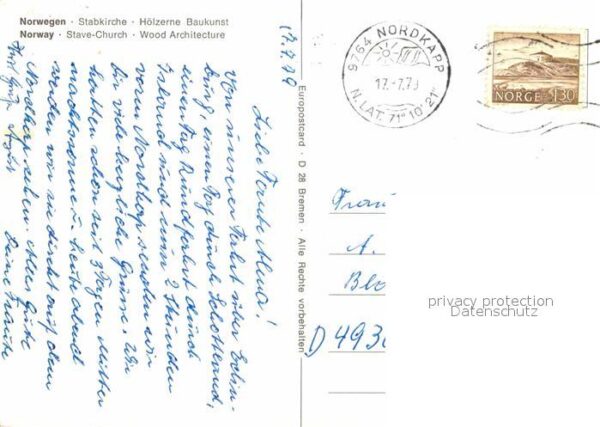 Norwegen · Stabkirche · Hölzerne Baukunst
Norway · Stave-Church · Wood Architecture
17.7.79
Liebe Tante Alma!
Von unserer Fahrt über Edin-
burg, einen Tag durch Schottland,
einen Tag Rundfahrt durch
Island und nun 2 Stunden
vom Nordkap senden wir
Dir viele herzliche Grüße. Wir
hatten schon seit 3 Tagen Mitter
nachtssonne u. heute abend
werden wir sie direkt auf dem
Nordkap sehen. Alles Gute
Deine Traute
Europostcard · D 28 Bremen · Alle Rechte vorbehalten
9764 NORDKAPP
17.-7.79
N.LAT. 71° 10' 21"
NORGE 1.30
Frau
A.
Blo
D 493
privacy protection
Datenschutz